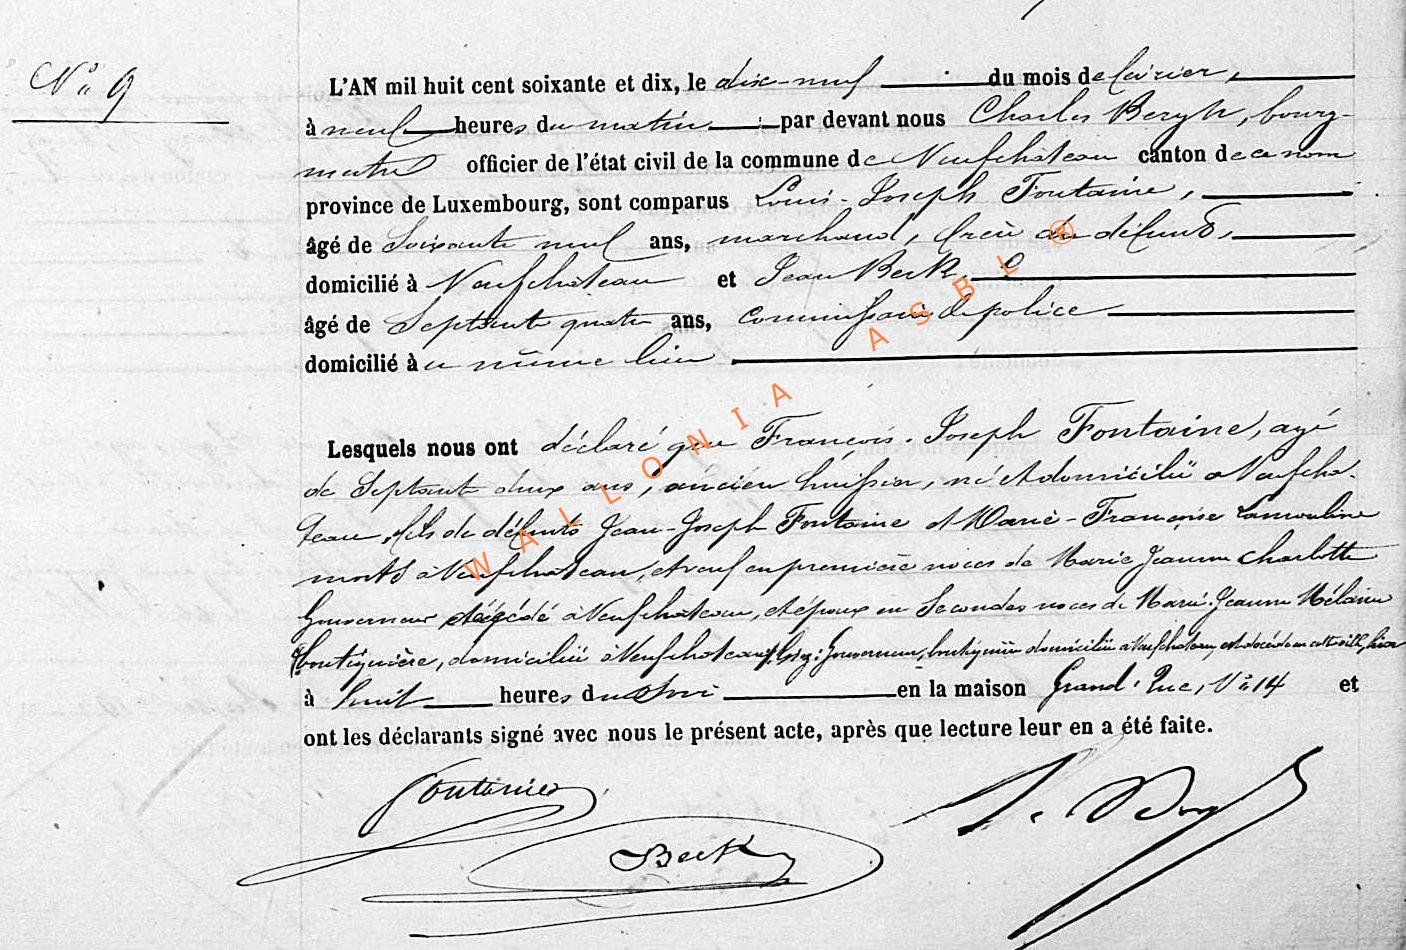 N° 9
L'AN mil huit cent soixante et dix, le dix-neuf du mois de février,
à neuf heures du matin par devant nous Charles Bergh, bourg-
mestre officier de l'état civil de la commune de Neufchâteau canton de ce nom
province de Luxembourg, sont comparus Louis-Joseph Fontaine,
âgé de soixante neuf ans, marchand, frère du défunt,
domicilié à Neufchâteau et Jean Beck,
âgé de septante quatre ans, commissaire de police
domicilié au même lieu
Lesquels nous ont déclaré que François-Joseph Fontaine, agé
de septante deux ans, ancien huissier, né et domicilié à Neufchâ-
teau, fils de défunts Jean-Joseph Fontaine et Marie-Françoise Lamouline
morts à Neufchâteau, et veuf en première noces de Marie Jeanne Charlotte
Gouverneur décédé à Neufchâteau, et époux en secondes noces de Marie-Jeanne Mélanie
boutiquière, domiciliée à Neufchâteau Gouverneur, boutiquière domiciliée à Neufchâteau, est décédé en cette ville, hier
à huit heures du soir en la maison Grand'Rue, N° 14 et
ont les déclarants signé avec nous le présent acte, après que lecture leur en a été faite.
Fontaine
Beck
WALLONIA ASBL ®